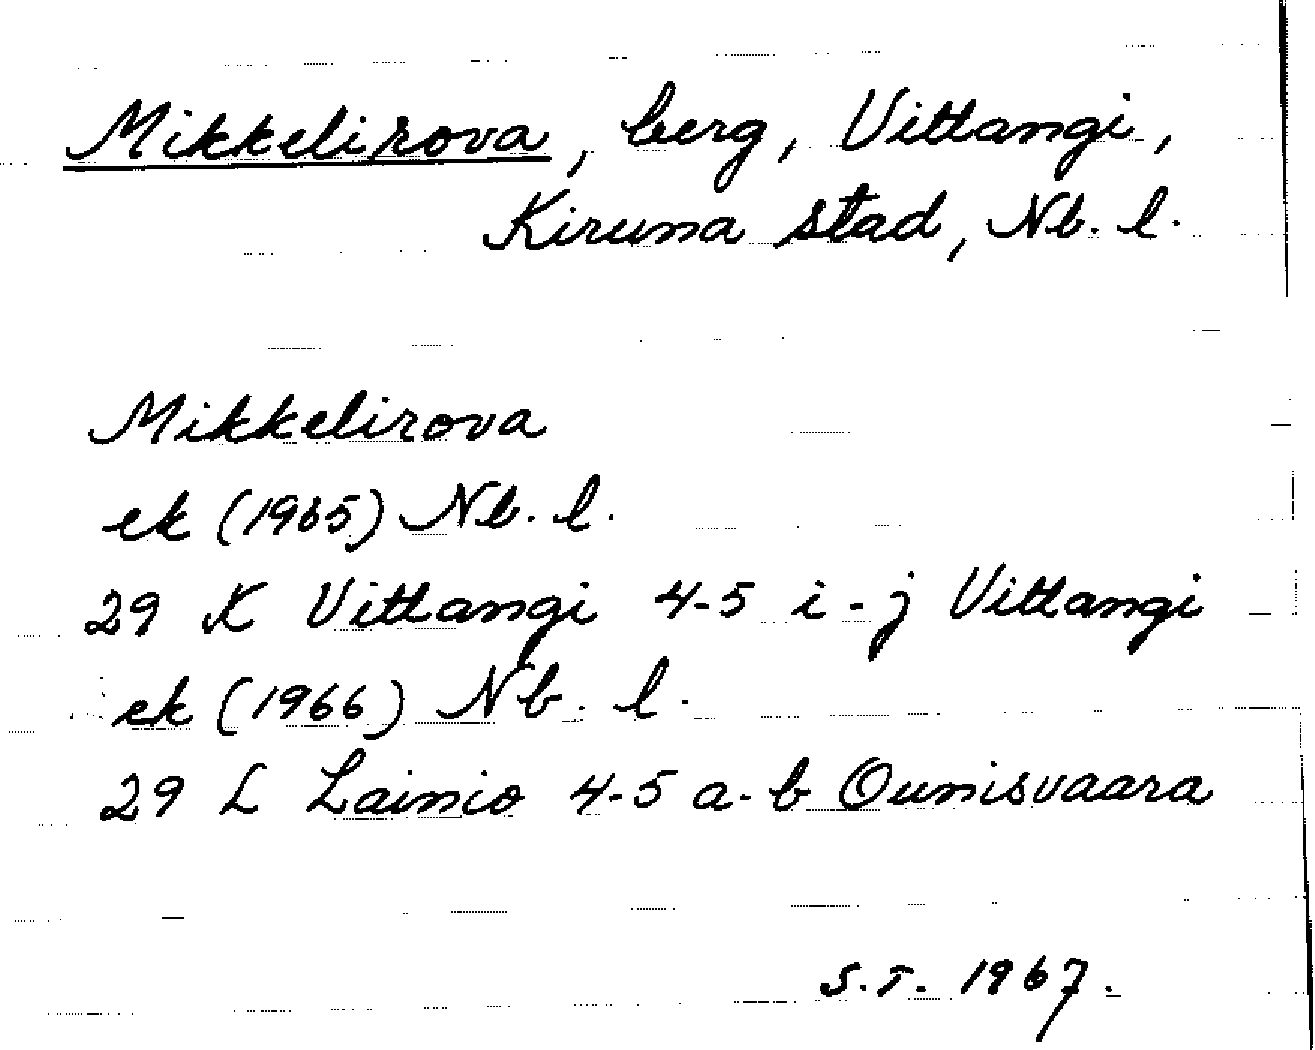 Mikkelirova, berg, Vittangi,
Kiruna stad, Nb. l.
Mikkelirova
ek (1965) Nb. l.
29 K Vittangi 4-5 i-j Vittangi
ek (1966) Nb. l.
29 L Lainio 4-5 a-b Ounisvaara
S.T. 1967.